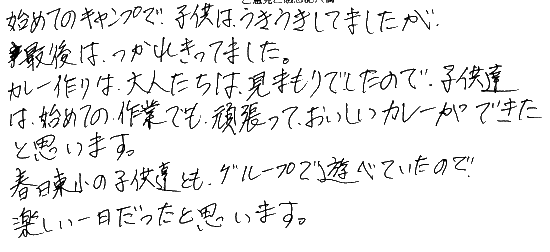 始めてのキャンプで、子供は、うきうきしてましたが、
最後は、つかれきってました。
カレー作りは、大人たちは、見まもりでしたので、子供達
は、始めての、作業でも、頑張って、おいしいカレーができた
と思います。
春日東小の子供達とも、グループで遊べていたので、
楽しい一日だったと思います。